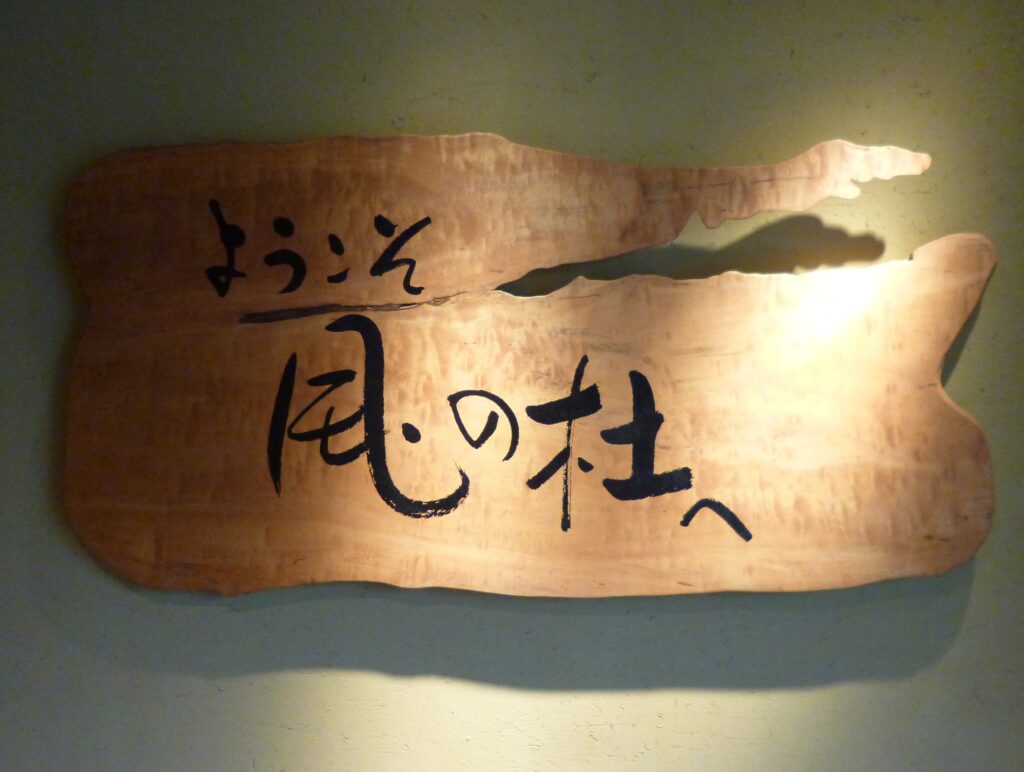 ようこそ
風の杜へ